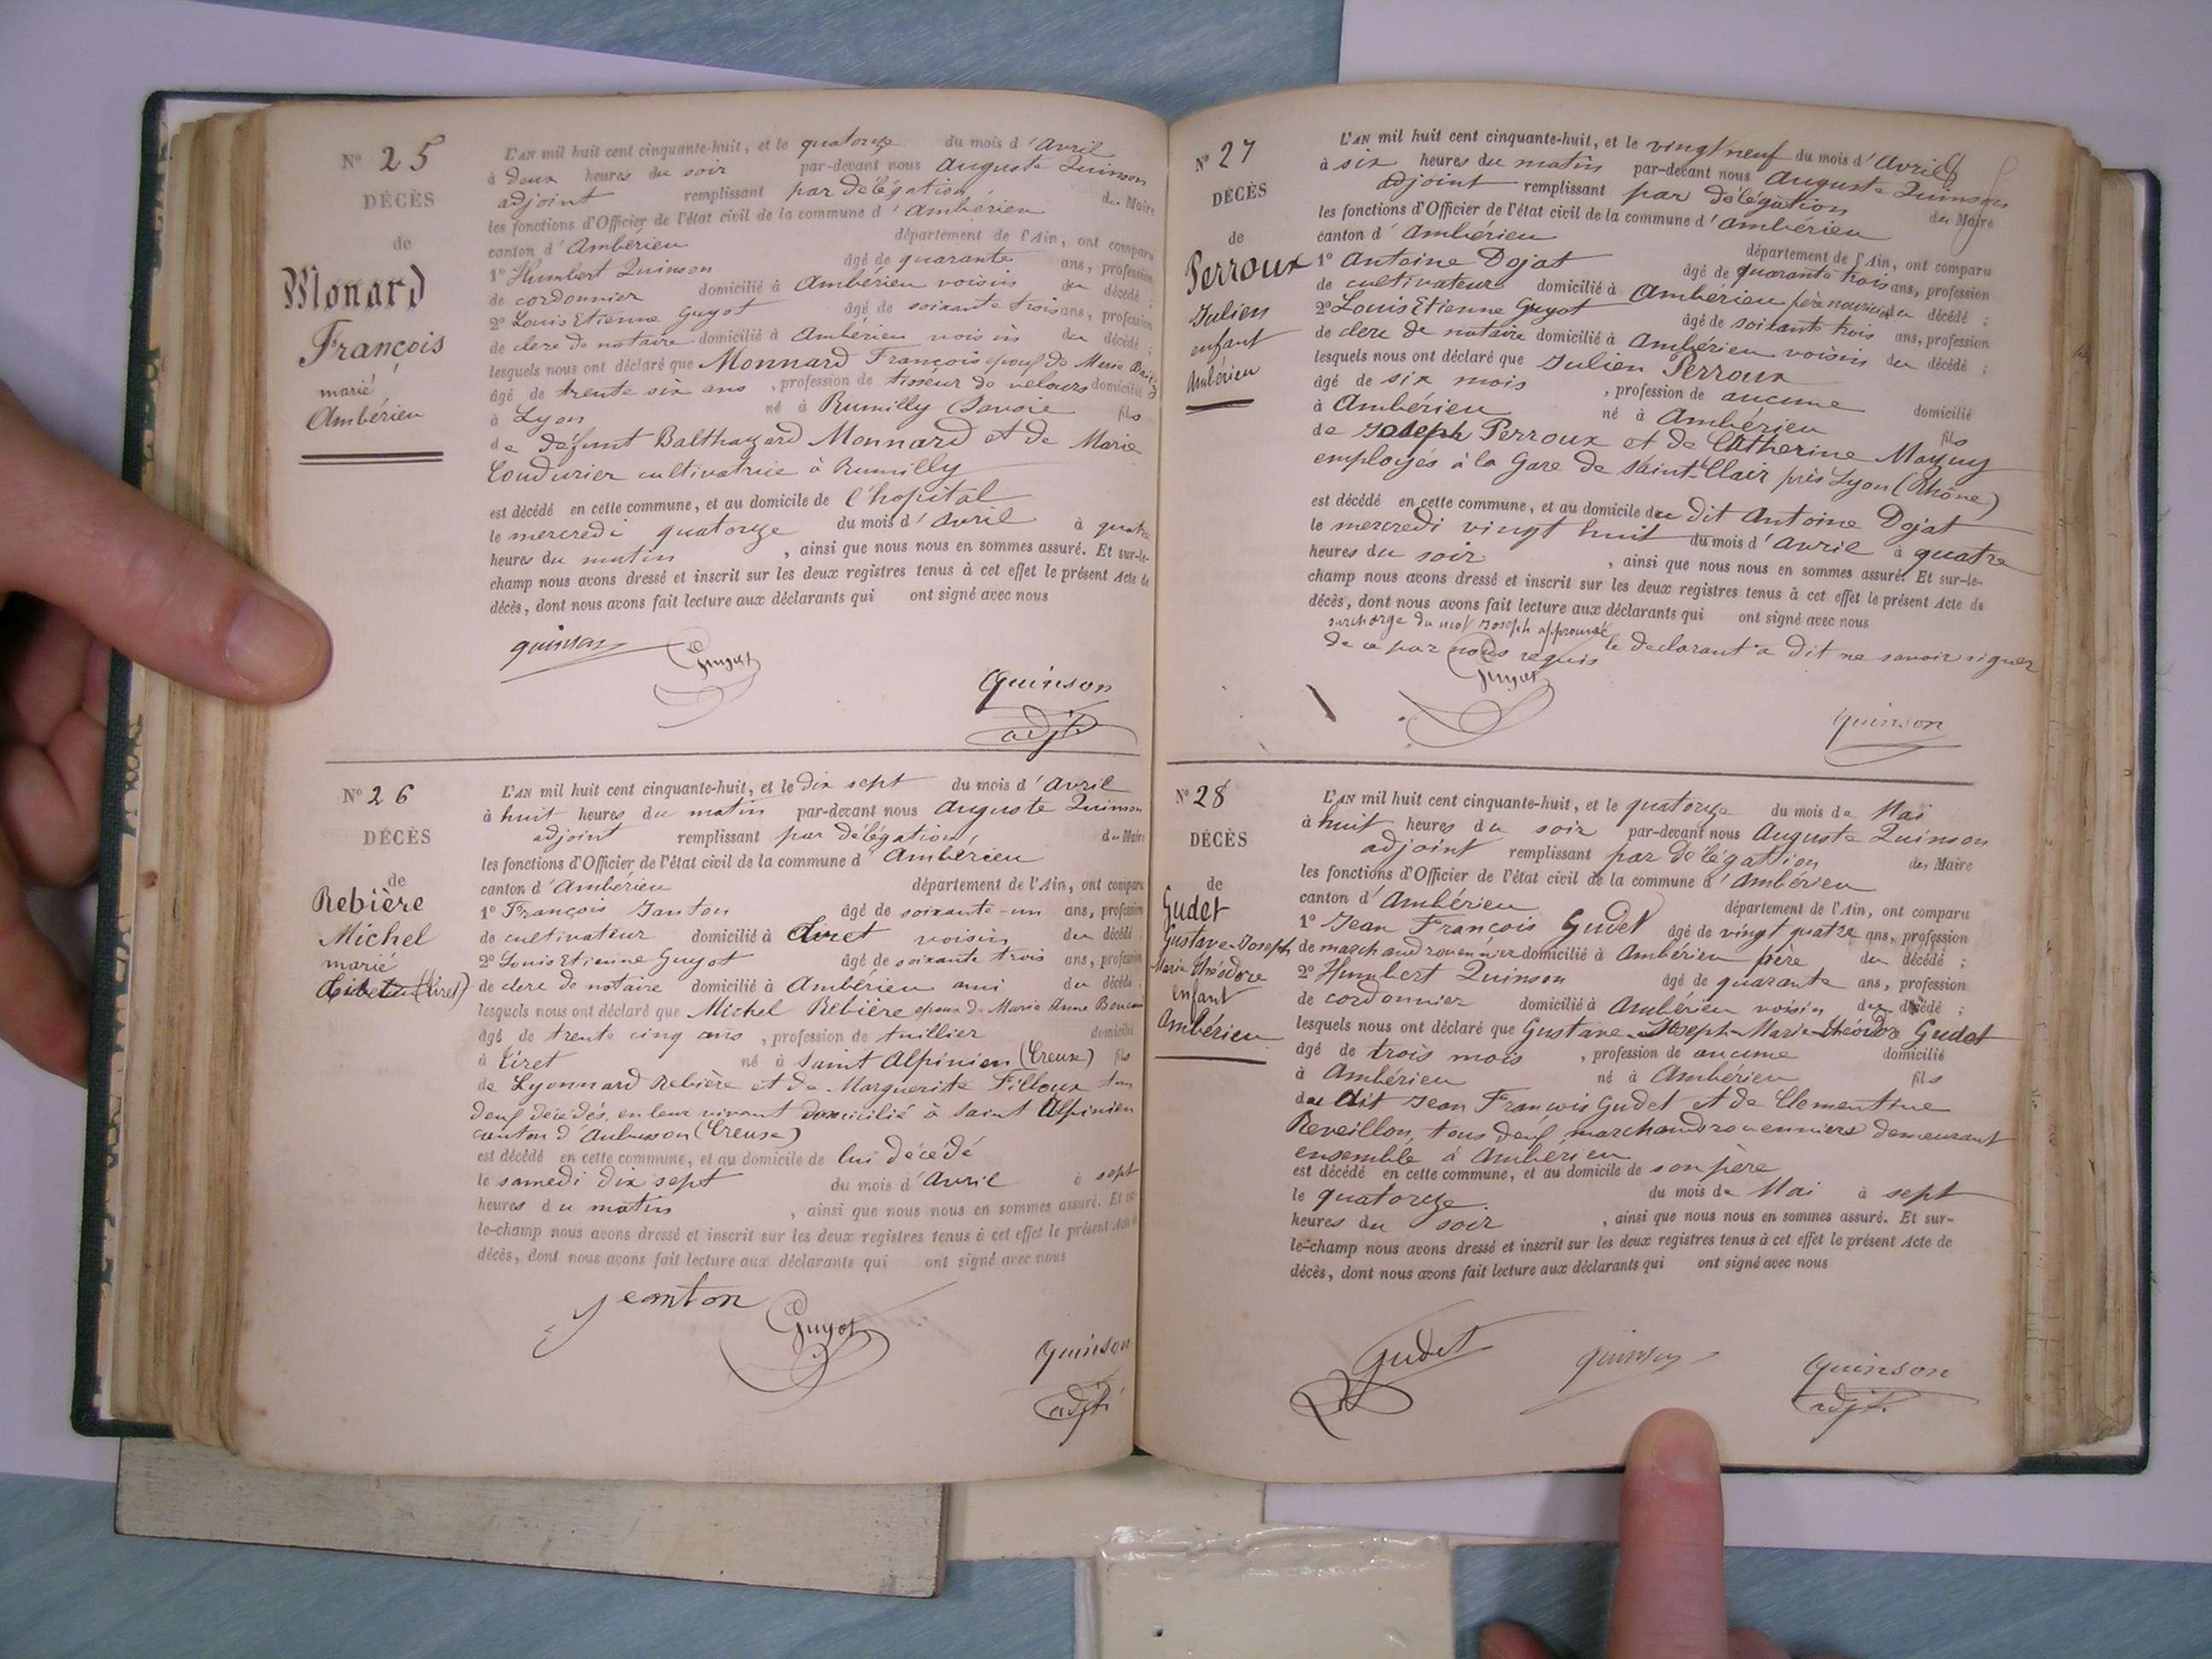 N° 25
DÉCÈS
de
Monard
François
marié
Ambérieu
L'AN mil huit cent cinquante-huit, et le quatorze du mois d'Avril
à deux heures du soir par-devant nous Auguste Quinson
adjoint remplissant par délégation du Maire
les fonctions d'Officier de l'état civil de la commune d'Ambérieu
canton d'Ambérieu département de l'Ain, ont comparu
1° Humbert Quinson âgé de quarante ans, profession
de cordonnier domicilié à Ambérieu voisin du décédé ;
2° Louis Etienne Guyot âgé de soixante trois ans, profession
de clerc de notaire domicilié à Ambérieu voisin du décédé ;
lesquels nous ont déclaré que Monnard François époux de Marie
âgé de trente six ans , profession de tisseur de velours domicilié
à Lyon né à Rumilly (Savoie fils
de défunt Balthazard Monnard et de Marie
Coudurier cultivatrice à Rumilly
est décédé en cette commune, et au domicile de l'hopital
le mercredi quatorze du mois d'Avril à quatre
heures du matin , ainsi que nous nous en sommes assuré. Et sur-le-
champ nous avons dressé et inscrit sur les deux registres tenus à cet effet le présent Acte de
décès, dont nous avons fait lecture aux déclarants qui ont signé avec nous
quinson Guyot
Quinson
adjt
N° 26
DÉCÈS
de
Rebière
Michel
marié
(Tiret)
L'AN mil huit cent cinquante-huit, et le dix sept du mois d'Avril
à huit heures du matin par-devant nous Auguste Quinson
adjoint remplissant par délégation, du Maire
les fonctions d'Officier de l'état civil de la commune d'Ambérieu
canton d'Ambérieu département de l'Ain, ont comparu
1° François Janton âgé de soixante-un ans, profession
de cultivateur domicilié à Tiret voisin du décédé ;
2° Louis Etienne Guyot âgé de soixante trois ans, profession
de clerc de notaire domicilié à Ambérieu ami du décédé ;
lesquels nous ont déclaré que Michel Rebière époux de Marie Anne
âgé de trente cinq ans , profession de tuillier domicilié
à Tiret né à Saint Alpinien (Creuse) fils
de Lyonnard Rebière et de Marguerite Filloux tous
deux décédés, en leur vivant domicilié à Saint Alpinien
canton d'Aubusson (Creuse)
est décédé en cette commune, et au domicile de lui décédé
le samedi dix sept du mois d'Avril à sept
heures du matin , ainsi que nous nous en sommes assuré. Et sur-
le-champ nous avons dressé et inscrit sur les deux registres tenus à cet effet le présent Acte de
décès, dont nous avons fait lecture aux déclarants qui ont signé avec nous
jeanton Guyot
Quinson
adjt
N° 27
DÉCÈS
de
Perroux
Julien
enfant
Ambérieu
L'AN mil huit cent cinquante-huit, et le vingt neuf du mois d'Avril
à six heures du matin par-devant nous Auguste Quinson
adjoint remplissant par délégation du Maire
les fonctions d'Officier de l'état civil de la commune d'Ambérieu
canton d'Ambérieu département de l'Ain, ont comparu
1° Antoine Dojat âgé de quarante trois ans, profession
de cultivateur domicilié à Ambérieu père nouricier du décédé ;
2° Louis Etienne Guyot âgé de soixante trois ans, profession
de clerc de notaire domicilié à Ambérieu voisin du décédé ;
lesquels nous ont déclaré que Julien Perroux
âgé de six mois , profession de aucune domicilié
à Ambérieu né à Ambérieu fils
de Joseph Perroux et de Catherine Mayuy
employés à la Gare de Saint-Clair près Lyon (Rhône)
est décédé en cette commune, et au domicile du dit Antoine Dojat
le mercredi vingt huit du mois d'Avril à quatre
heures du soir , ainsi que nous nous en sommes assuré. Et sur-le-
champ nous avons dressé et inscrit sur les deux registres tenus à cet effet le présent Acte de
décès, dont nous avons fait lecture aux déclarants qui ont signé avec nous
surcharge du mot Joseph approuvé le déclarant a dit ne savoir signer
de ce par nous requis
Guyot
Quinson
N° 28
DÉCÈS
de
Gudet
Gustave-Joseph
Marie Théodore
enfant
Ambérieu
L'AN mil huit cent cinquante-huit, et le quatorze du mois de Mai
à huit heures du soir par-devant nous Auguste Quinson
adjoint remplissant par délégation du Maire
les fonctions d'Officier de l'état civil de la commune d'Ambérieu
canton d'Ambérieu département de l'Ain, ont comparu
1° Jean François Gudet âgé de vingt quatre ans, profession
de marchand rouennier domicilié à Ambérieu père du décédé ;
2° Humbert Quinson âgé de quarante ans, profession
de cordonnier domicilié à Ambérieu voisin du décédé ;
lesquels nous ont déclaré que Gustave-Joseph-Marie-théodore Gudet
âgé de trois mois , profession de aucune domicilié
à Ambérieu né à Ambérieu fils
du dit Jean François Gudet et de Clementine
Reveillon, tous deux marchands rouenniers demeurant
ensemble à Ambérieu
est décédé en cette commune, et au domicile de son père
le quatorze du mois de Mai à sept
heures du soir , ainsi que nous nous en sommes assuré. Et sur-
le-champ nous avons dressé et inscrit sur les deux registres tenus à cet effet le présent Acte de
décès, dont nous avons fait lecture aux déclarants qui ont signé avec nous
Gudet quinson Quinson
adjt.